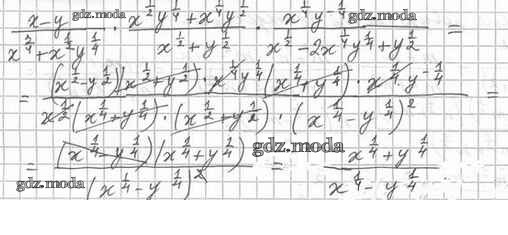 x-y / (x^{3/4}+x^{1/2}y^{1/4}) · (x^{1/2}y^{1/4}+x^{1/4}y^{1/2}) / (x^{1/2}+y^{1/2}) · x^{1/4}y^{-1/4} / (x^{1/2}-2x^{1/4}y^{1/4}+y^{1/2}) =
= (x^{1/2}-y^{1/2})(x^{1/2}+y^{1/2}) · x^{1/4}y^{1/4}(x^{1/4}+y^{1/4}) · x^{1/4}·y^{-1/4} / (x^{1/2}(x^{1/4}+y^{1/4}) · (x^{1/2}+y^{1/2}) · (x^{1/4}-y^{1/4})^2) =
= (x^{1/4}-y^{1/4})(x^{1/4}+y^{1/4}) / (x^{1/4}-y^{1/4})^2 = (x^{1/4}+y^{1/4}) / (x^{1/4}-y^{1/4})
gdz.moda
gdz.moda
gdz.moda
gdz.moda